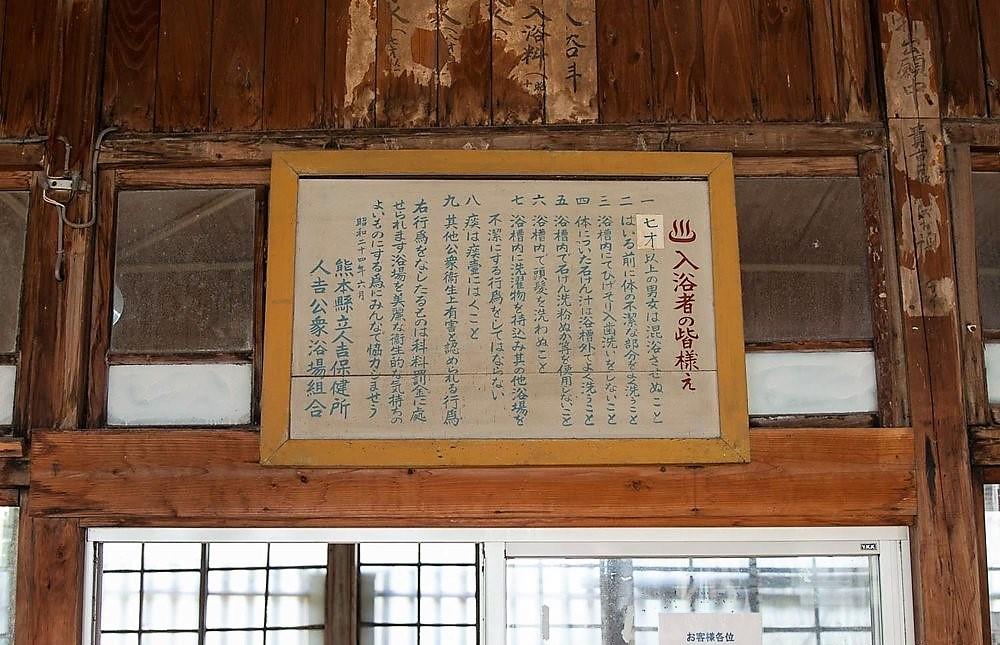 ♨入浴者の皆様え
一 七才以上の男女は混浴させぬこと
二 はいる前に体の不潔な部分をよく洗うこと
三 浴槽内にてひげそり入歯洗いをしないこと
四 体についた石けん汁は浴槽外でよく洗うこと
五 浴槽内で石けん洗粉ぬか等を使用しないこと
六 浴槽内で頭髪を洗わぬこと
七 浴槽内に洗濯物を持込み其の他浴場を
不潔にする行為をしてはならない
八 痰は痰壷にはくこと
九 其他公衆衛生上有害と認められる行為
右行為をなしたるものは科料罰金に處
せられます浴場を美麗な衛生的な気持ちの
よいものにする為にみんなで協力しませう
昭和二十四年六月
熊本縣立人吉保健所
人吉公衆浴場組合
入浴料
お客様各位